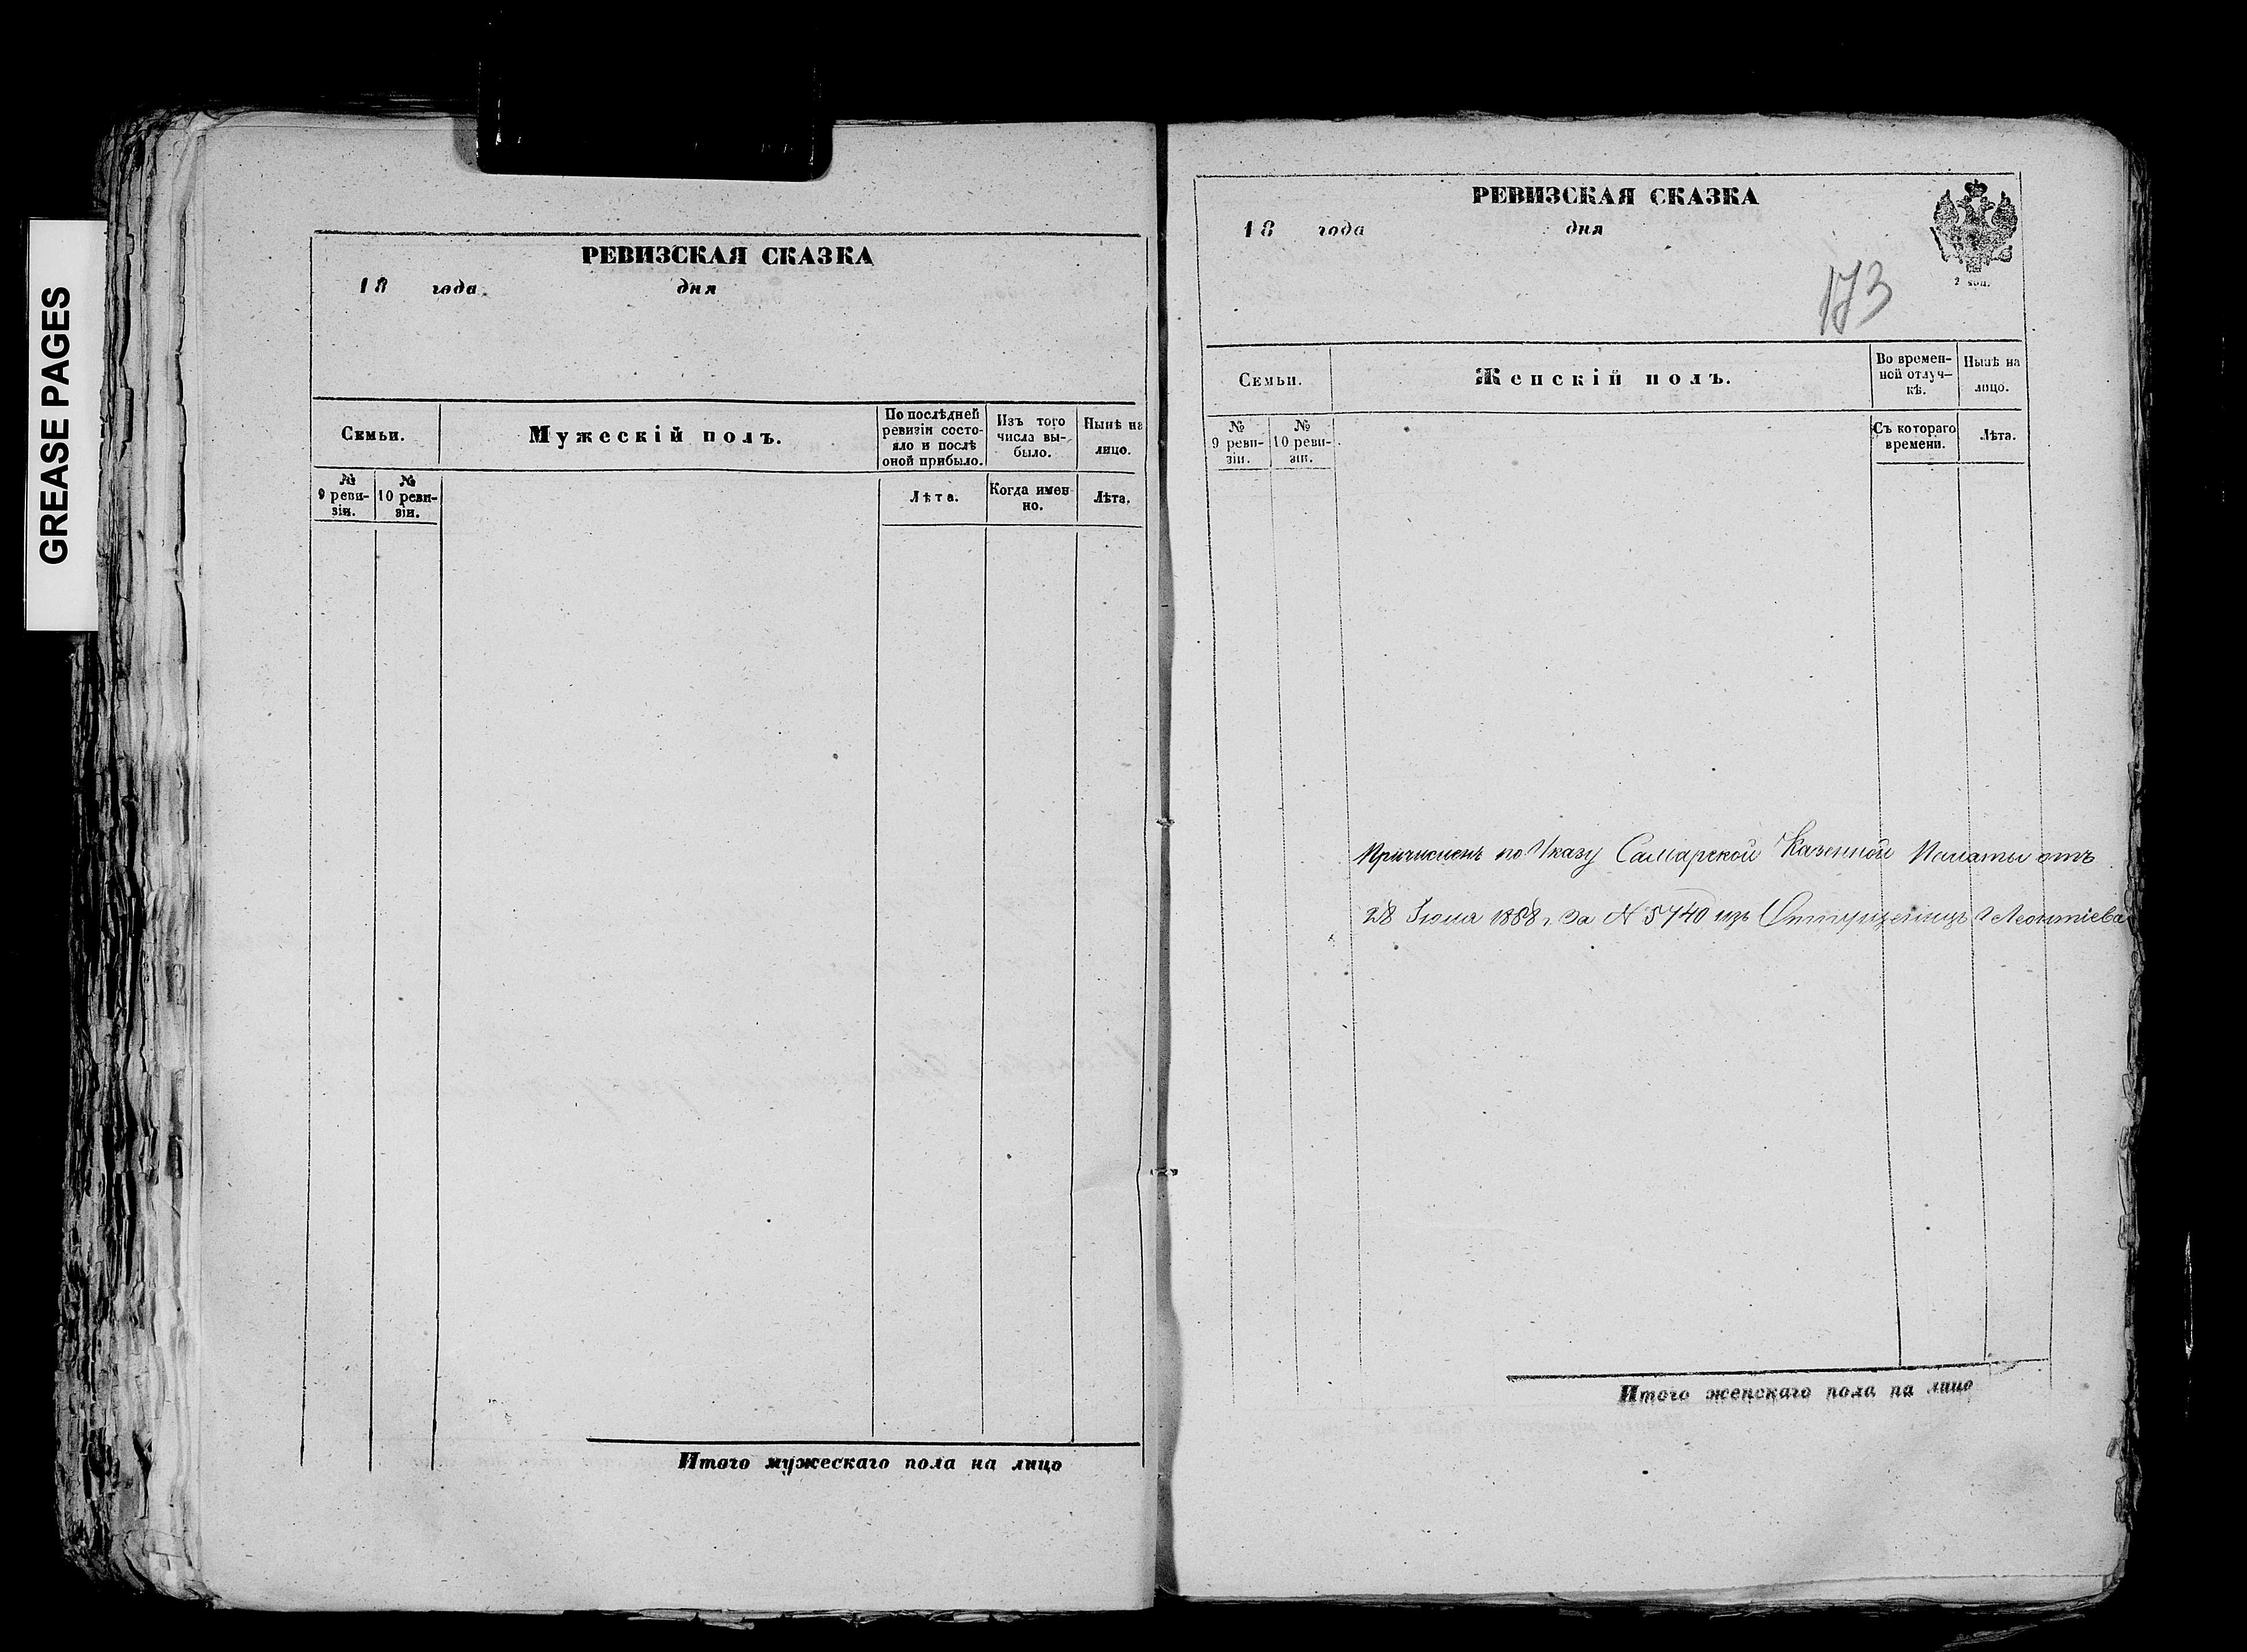 GREASE PAGES
РЕВИЗСКАЯ СКАЗКА
18 года дня
Семьи.
Мужескій полъ.
По послѣдней ревизіи состо-яло и послѣ оной прибыло.
Изъ того числа вы-было.
Нынѣ на лицо.
№ 9 реви-зіи.
№ 10 реви-зіи.
Лѣта.
Когда имен-но.
Лѣта.
Итого мужескаго пола на лицо
РЕВИЗСКАЯ СКАЗКА
18 года дня
2 коп.
173
Семьи.
Женскій полъ.
Во времен-ной отлуч-кѣ.
Нынѣ на лицо.
№ 9 реви-зіи.
№ 10 реви-зіи.
Съ котораго времени.
Лѣта.
Причисленъ по Указу Самарской Казенной Палаты отъ
28 Іюля 1858 г. за N 5740 изъ Отпущенниц Леонтіева
Итого женскаго пола на лицо